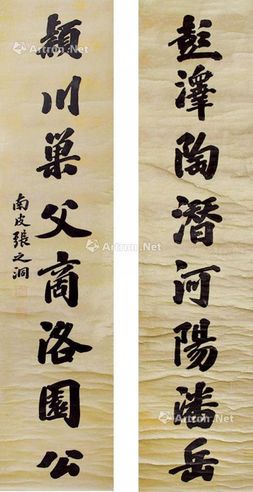 彭澤陶潛河陽潘岳
穎川巢父商洛園公
南皮張之洞
Artron.Net
Artron.Net
Artron.Net
Artron.Net